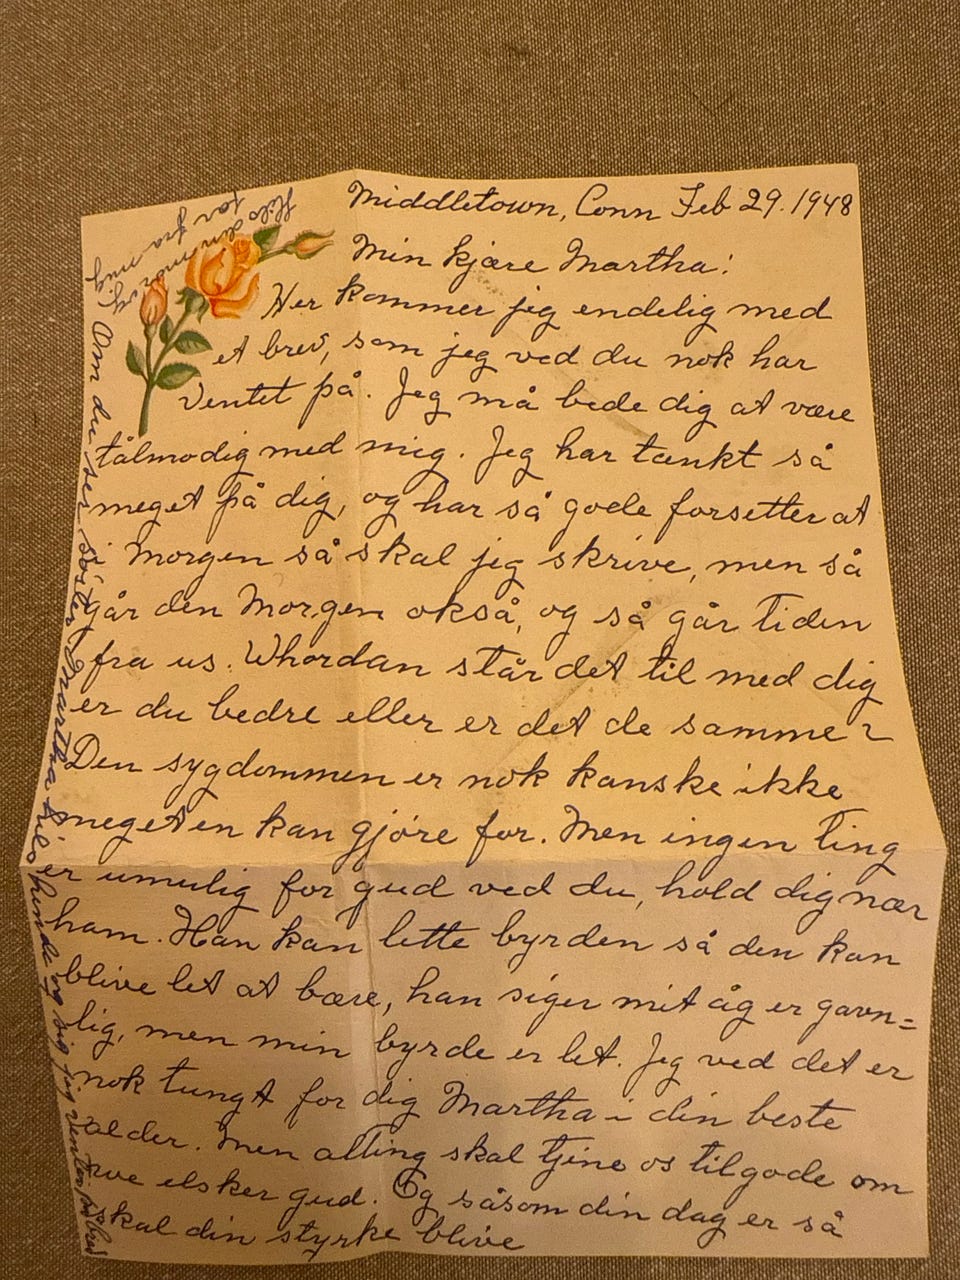 Middletown, Conn Feb 29. 1948
Min kjære Martha!
Her kommer jeg endelig med
et brev, som jeg ved du nok har
ventet på. Jeg må bede dig at være
tålmodig med mig. Jeg har tænkt så
meget på dig, og har så gode forsetter at
i morgen så skal jeg skrive, men så
går den morgen også, og så går tiden
fra us. Whordan står det til med dig
er du bedre eller er det de samme?
Den sygdommen er nok kanske ikke
meget en kan gjøre for. Men ingen ting
er umulig for gud ved du, hold dig nær
ham. Han kan lette byrden så den kan
blive let at bære, han siger mit åg er gavn=
lig, men min byrde er let. Jeg ved det er
nok tungt for dig Martha i din beste
alder. Men alting skal tjine os tilgode om
we elsker gud. Og såsom din dag er så
skal din styrke blive
Om du ser søster Martha hils hinde og sig jeg venter på brev
Hils din mor og
far fra mig